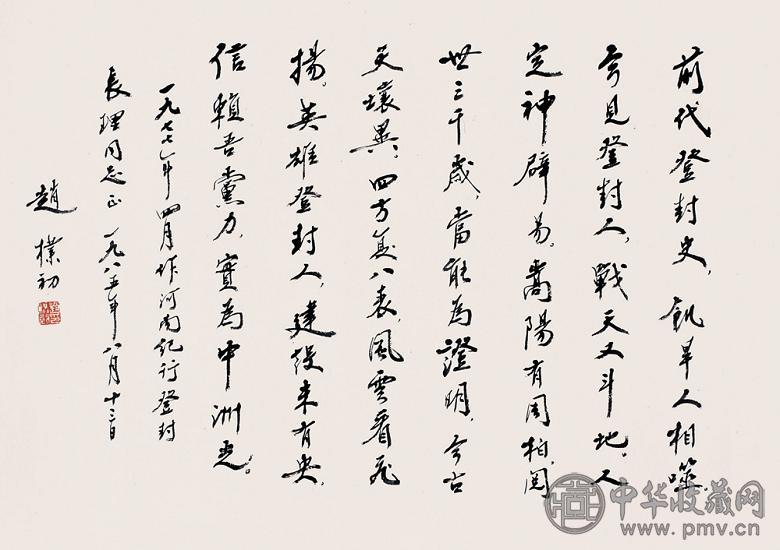 前代登封史，飢旱人相噬。
今見登封人，戰天又鬥地。人
定神辟易。嵩陽有周柏，閱
世三千歲，當能為證明，今古
天壤異。四方與八表，風雲看飛
揚。英雄登封人，建設未有央。
信賴吾黨力，實為中洲光。
一九七七年四月作河南紀行登封
長理同志正 一九八五年八月十三日
趙樸初
中华收藏网
www.pmv.cn